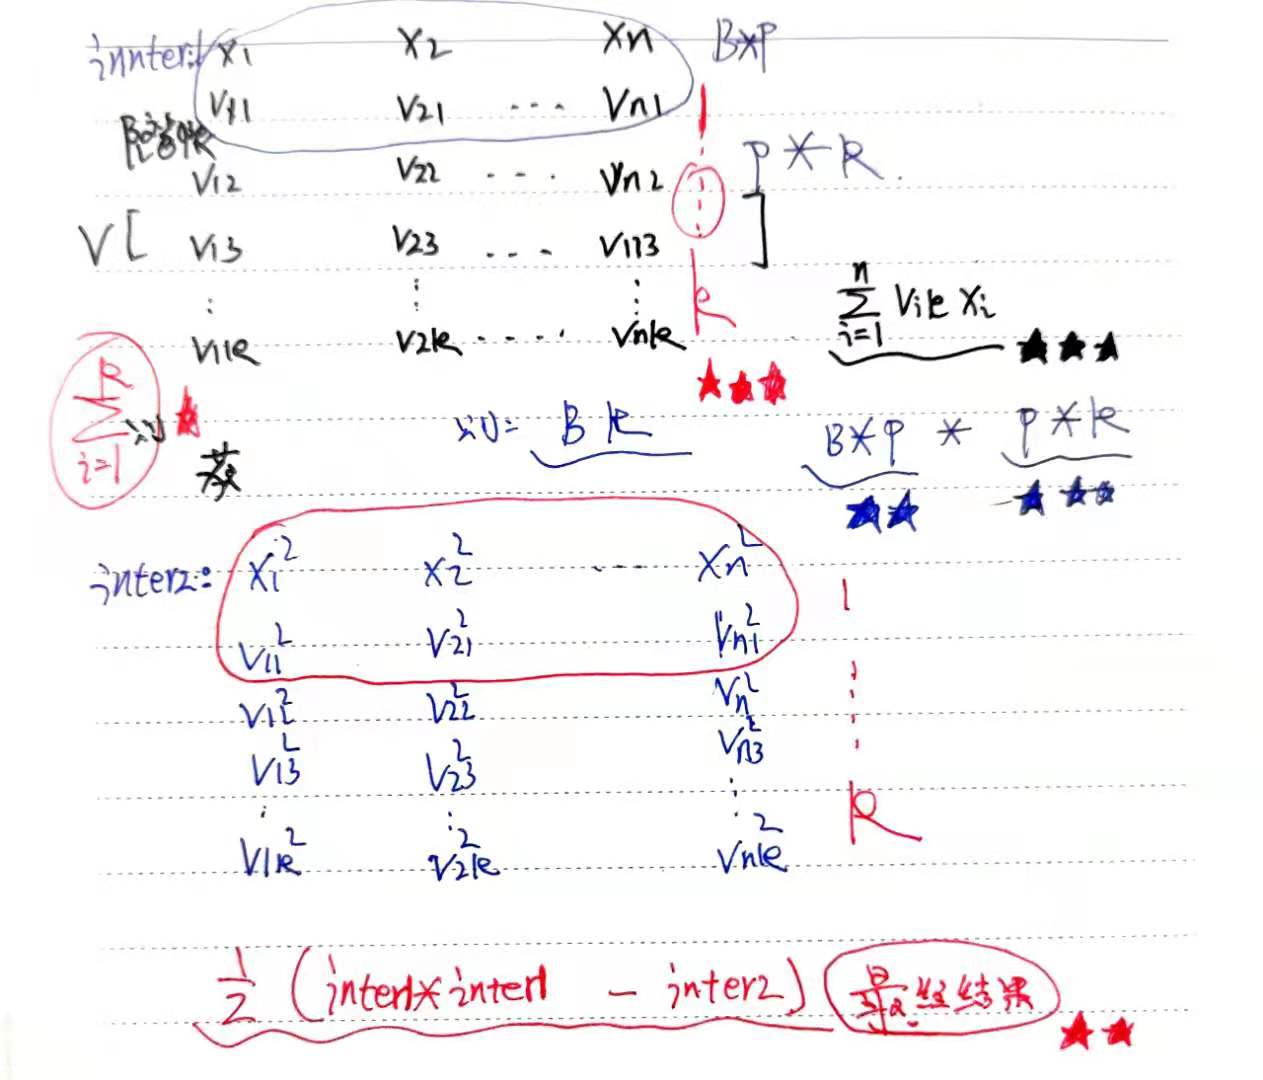 innter1 x1 x2 xn B*P
V11 V21 ... Vn1 1
V12 V22 .... Vn2 P*K.
V[ V13 V23 .... Vn3 ]
⋮ ⋮ ⋮ K
V1k V2k ..... Vnk
n
∑ Vik Xi ★★★
i=1
★★★
K
∑ ★
i=1
B K B*P * P*K
★★ ★★★
inter2: X1² X2² .... Xn² 1
V11² V21² Vn1²
V12² V22² Vn²
V13² V23² Vn3²
⋮ ⋮ ⋮ K
V1k² V2k² Vnk²
1/2 (inter1*inter1 - inter2) 最终结果 ★★